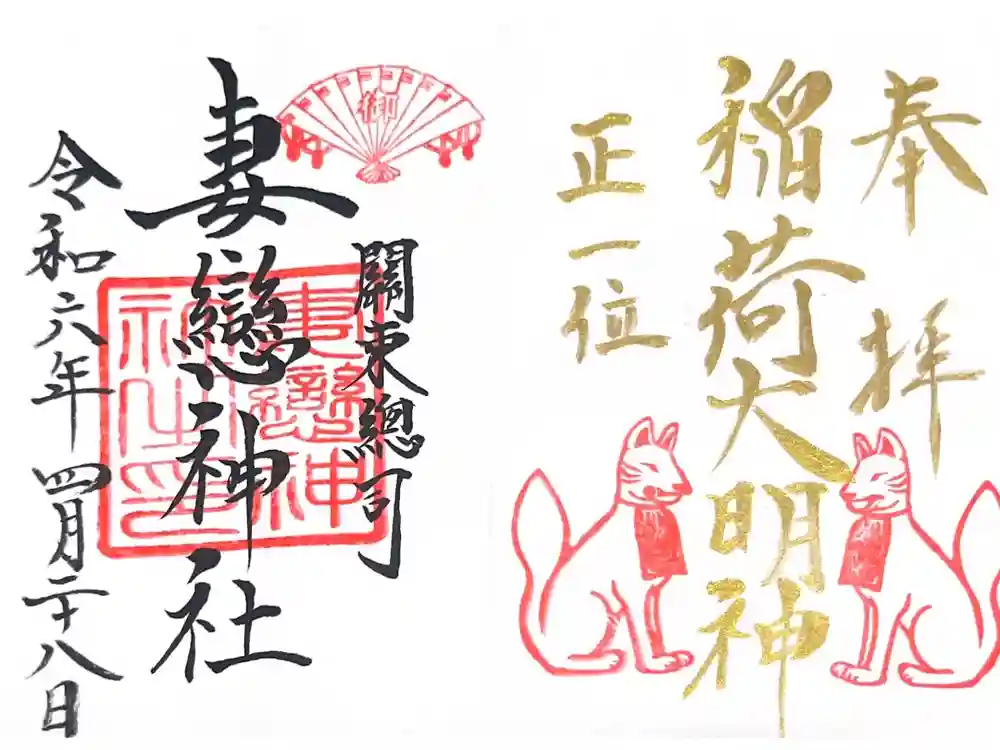 奉拝
稲荷大明神
正一位
御
關東總司
妻戀神社
妻戀神社之印
令和六年四月二十八日